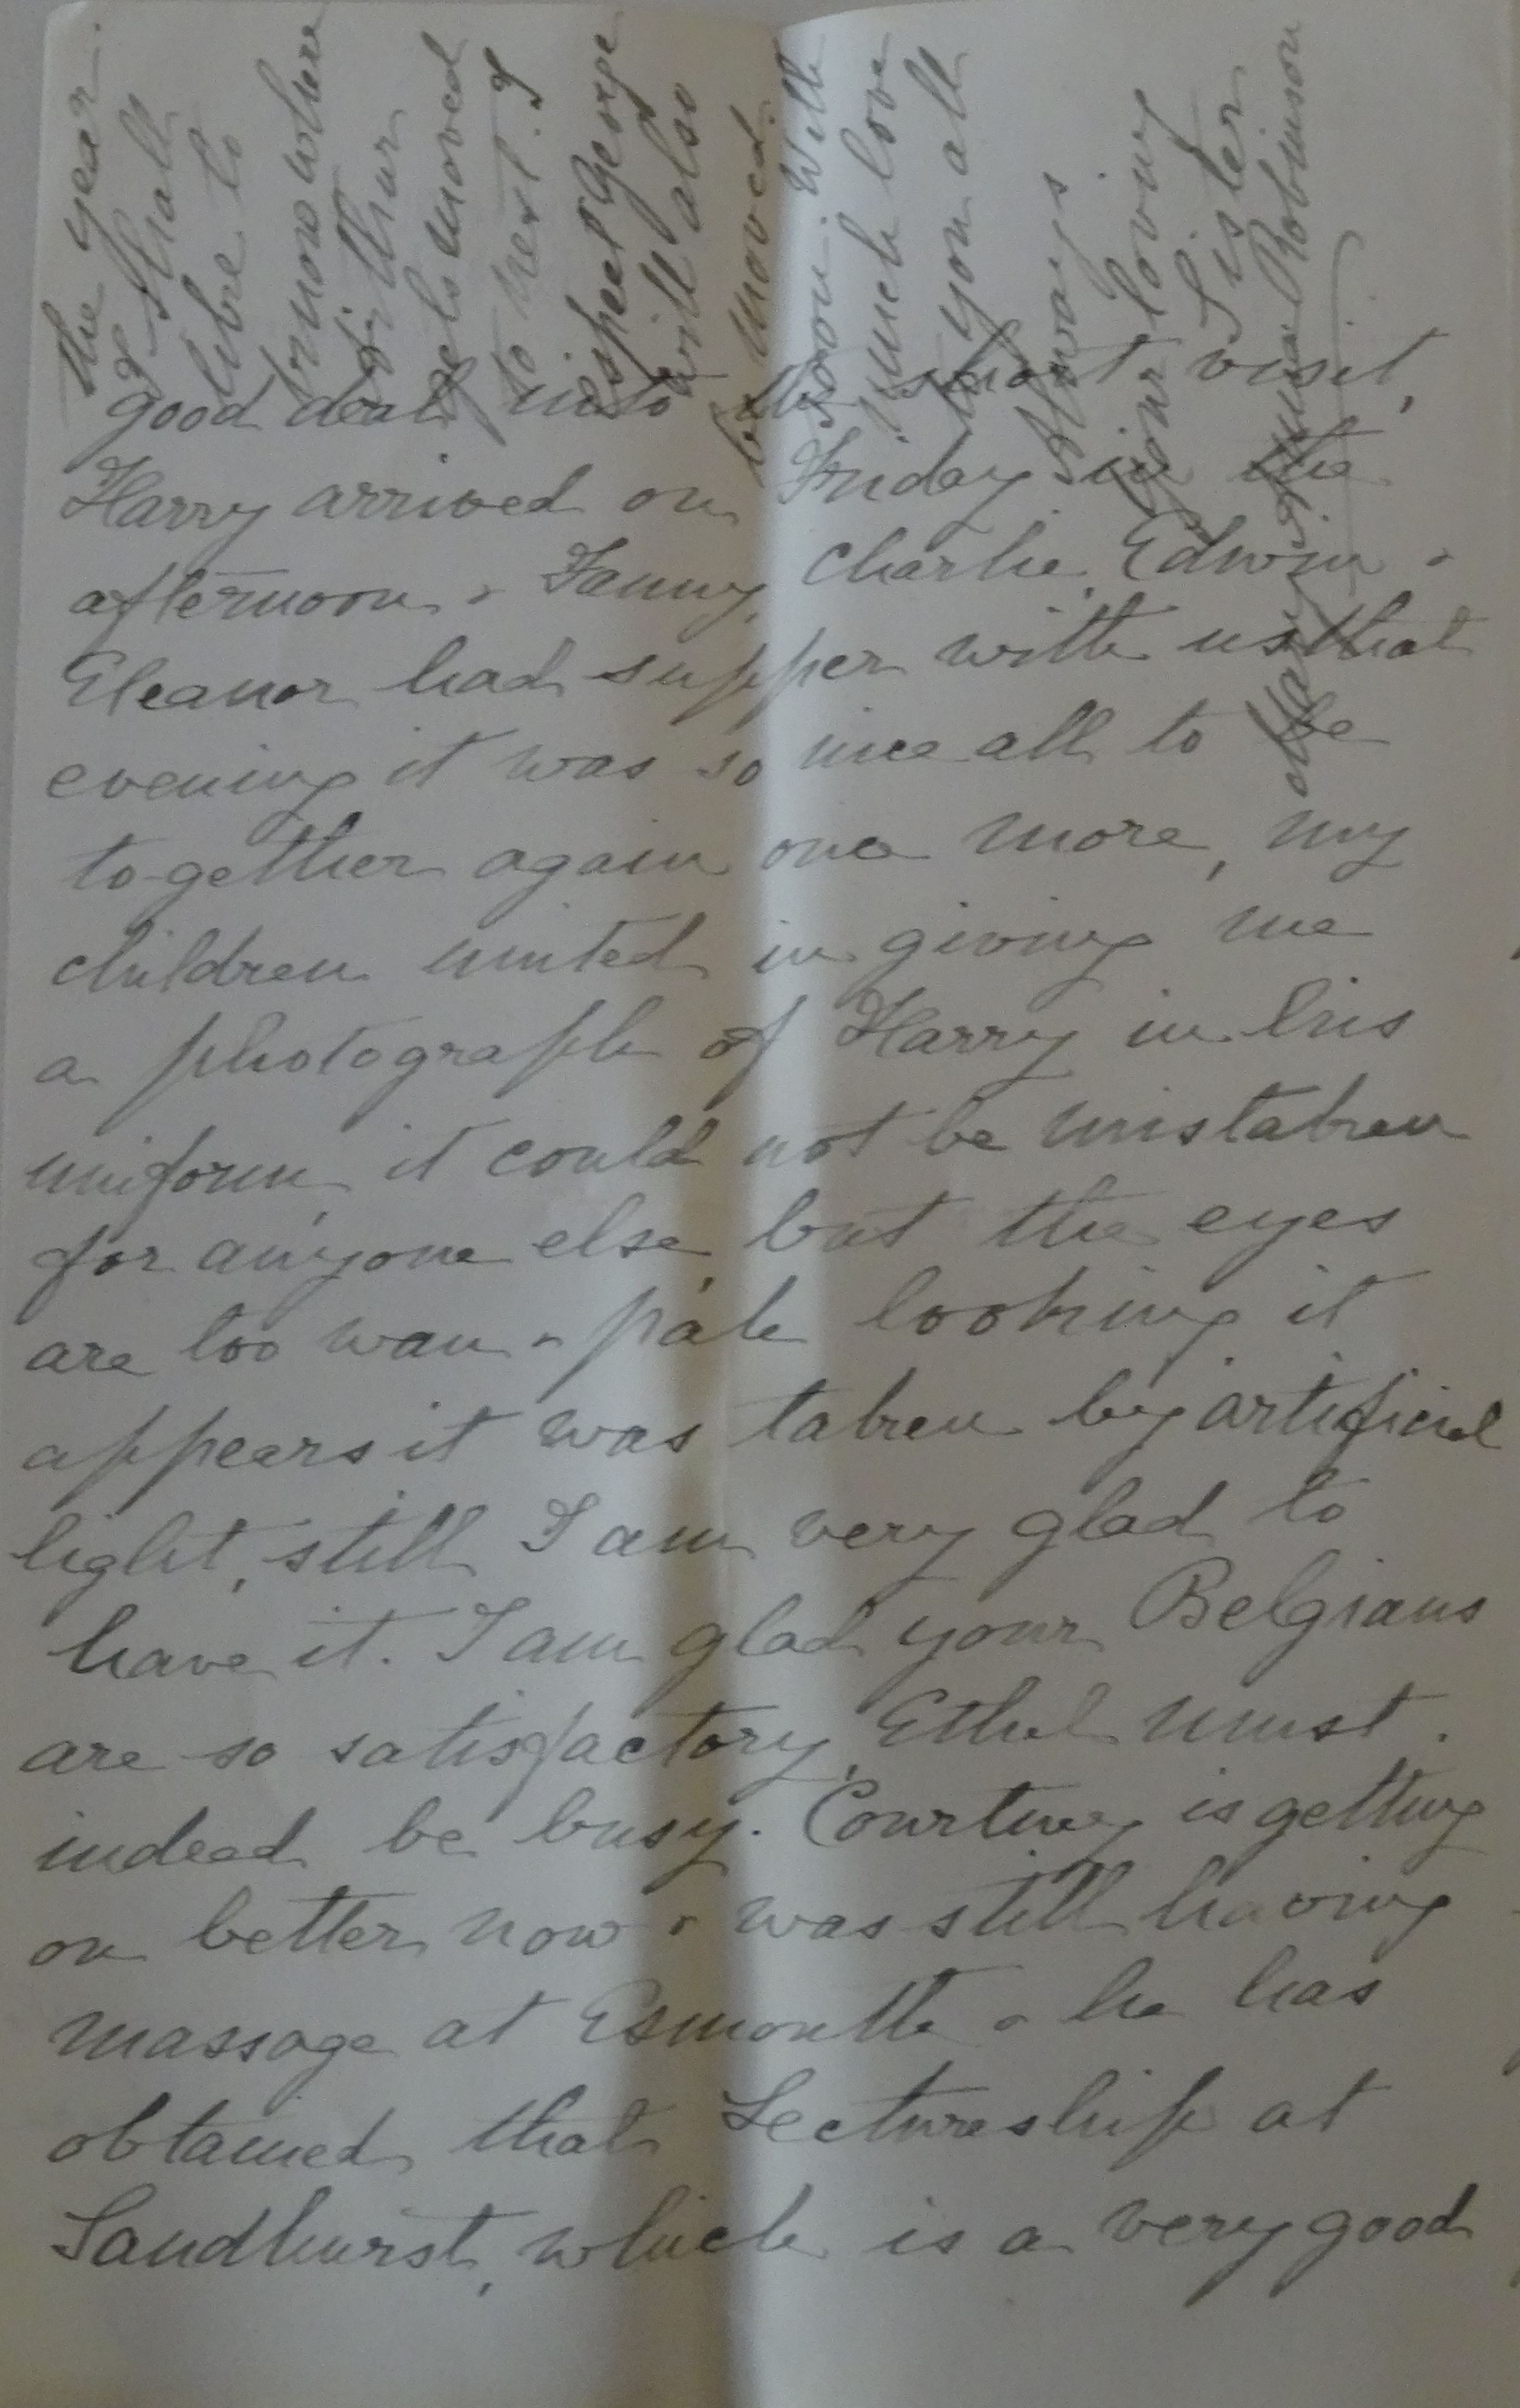 good deal into the short visit,
Harry arrived on Friday in the
afternoon & Fanny, Charlie, Edwin &
Eleanor had supper with us that
evening it was so nice all to be
together again once more, my
children united in giving me
a photograph of Harry in his
uniform, it could not be mistaken
for anyone else, but the eyes
are too wan & pale looking it
appears it was taken by artificial
light, still I am very glad to
have it. I am glad your Belgians
are so satisfactory, Ethel must
indeed be busy. Courtney is getting
on better now & was still having
massage at Esmouth & he has
obtained that Lectureship at
Sandhurst, which is a very good
the year.
I shall
like to
know where
Arthur
gets moved
to next. I
expect George
will also
be moved
soon. With
much love
to you all
Always
your loving
Sister
Mary Anna Robinson